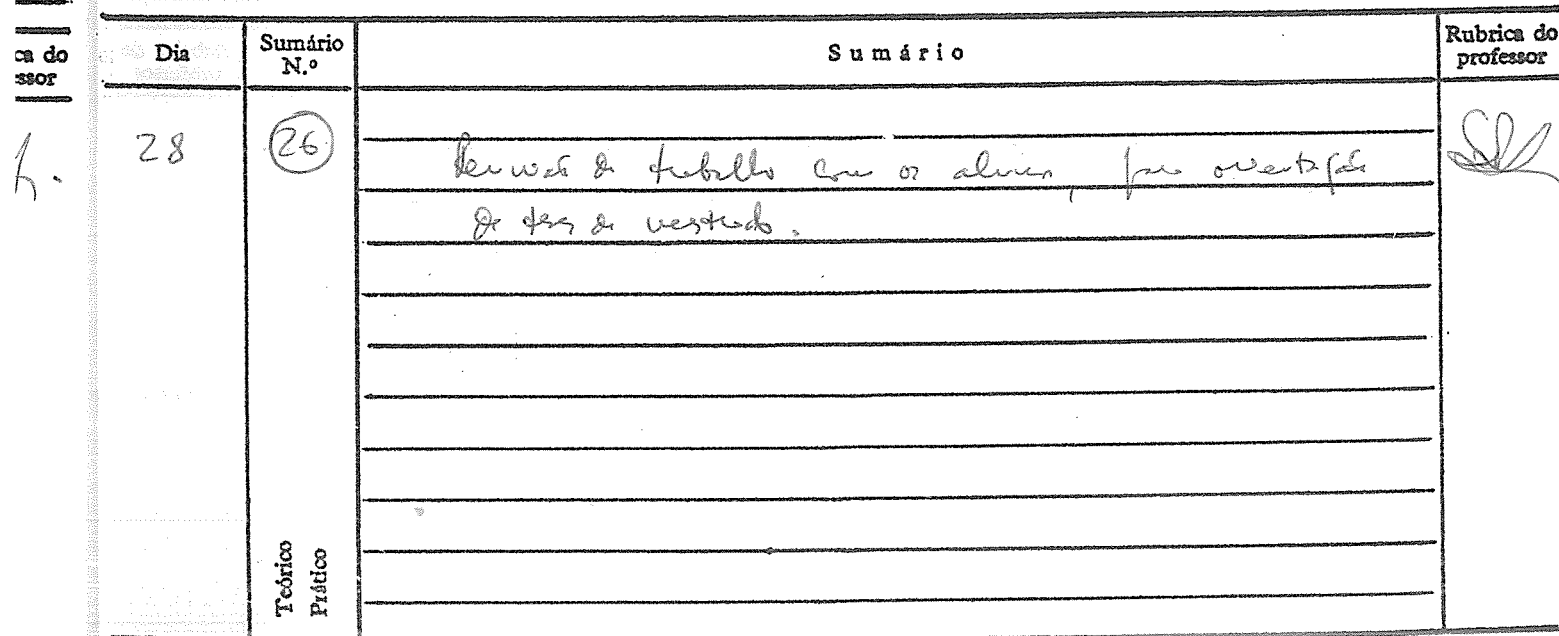 ca do
ssor
Dia
Sumário
N.º
Sumário
Rubrica do
professor
28
26
Reunião de trabalho com os alunos, para orientação
de tese de mestrado.
Teórico
Prático